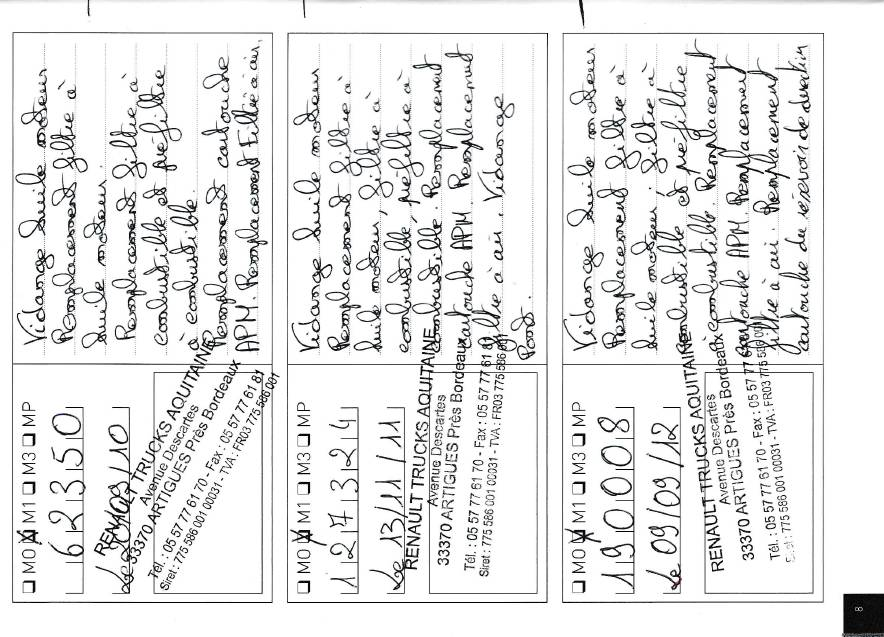 ☐ MO ☒ M1 ☐ M3 ☐ MP
62350
RENAULT TRUCKS AQUITAINE
Avenue Descartes
33370 ARTIGUES Près Bordeaux
Tél. : 05 57 77 61 70 - Fax : 05 57 77 61 81
Siret : 775 586 001 00031 - TVA : FR03 775 586 001
Vidange huile moteur
Remplacement filtre à
huile moteur.
Remplacement filtre à
combustible et préfiltre
à combustible.
Remplacement cartouche
APM. Remplacement Filtre à air.
☐ MO ☒ M1 ☐ M3 ☐ MP
127324
Le 13/11/11
RENAULT TRUCKS AQUITAINE
Avenue Descartes
33370 ARTIGUES Près Bordeaux
Tél. : 05 57 77 61 70 - Fax : 05 57 77 61 81
Siret : 775 586 001 00031 - TVA : FR03 775 586 001
Vidange huile moteur
Remplacement filtre à
huile moteur, filtre à
combustible, préfiltre à
combustible. Remplacement
cartouche APM Remplacement
filtre à air, Vidange
Pont.
☐ MO ☒ M1 ☐ M3 ☐ MP
190008
Le 09/09/12
RENAULT TRUCKS AQUITAINE
Avenue Descartes
33370 ARTIGUES Près Bordeaux
Tél. : 05 57 77 61 70 - Fax : 05 57 77
Siret : 775 586 001 00031 - TVA : FR03 775 586 001
Vidange huile moteur
Remplacement filtre à
huile moteur. filtre à
combustible et préfiltre
à combustible. Remplacement
cartouche APM. Remplacement
filtre à air. Remplacement
cartouche du réservoir de direction
8